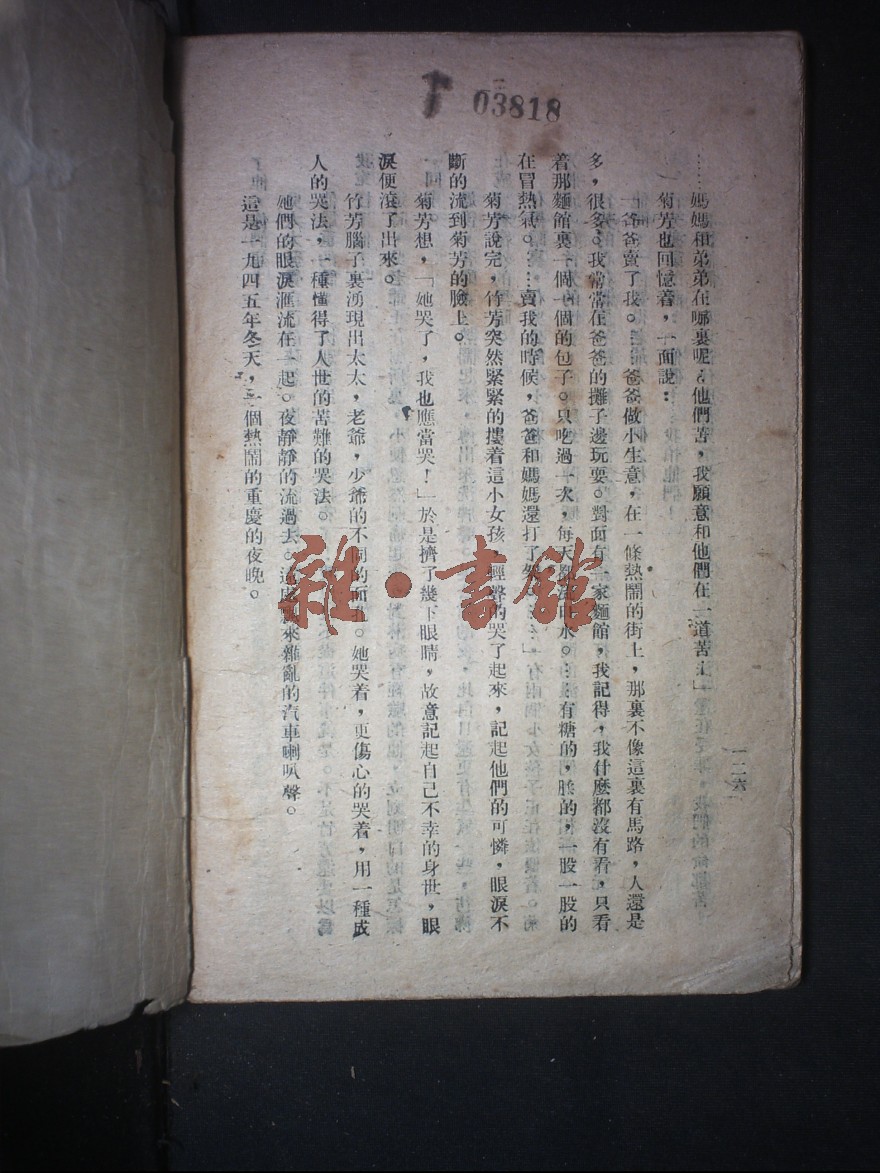 03818
一二六
……媽媽和弟弟在哪裏呢?他們苦,我願意和他們在一道苦
菊芳也回憶着,一面說:
爸爸賣了我。爸爸做小生意,在一條熱鬧的街上,那裏不像這裏有馬路,人還是
多,很多。我常常在爸爸的攤子邊玩耍。對面有一家麵館,我記得,我什麼都沒有看,只看
着那麵館裏一個一個的包子。只吃過一次,每天都流口水。……有糖的,一股一股的
在冒熱氣。……賣我的時候,爸爸和媽媽還打了
菊芳說完,竹芳突然緊緊的摟着這小女孩,輕聲的哭了起來,記起他們的可憐,眼淚不
斷的流到菊芳的臉上。
菊芳想,「她哭了,我也應當哭!」於是擠了幾下眼睛,故意記起自己不幸的身世,眼
淚便滾了出來。
竹芳腦子裏湧現出太太,老爺,少爺的不同的面孔。她哭着,更傷心的哭着,用一種成
人的哭法,一種懂得了人世的苦難的哭法。
她們的眼淚滙流在一起。夜靜靜的流過去。遠處飄來雜亂的汽車喇叭聲。
這是一九四五年冬天,一個熱鬧的重慶的夜晚。
雜·書館